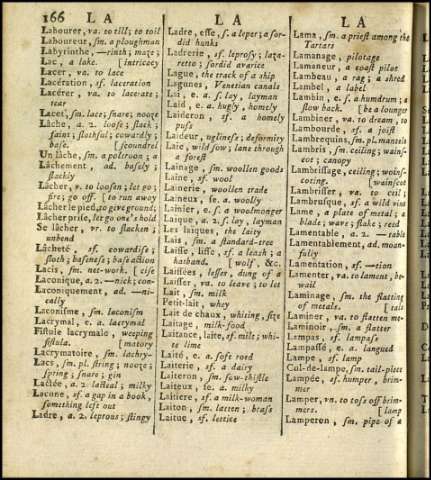 166 L A
Labourer, va. to till; to toil
Laboureur, sm. a ploughman
Labyrinthe, —rinth; maze;
Lac, a lake. [intricacy
Lacer, va. to lace
Lacération, sf. laceration
Lacérer, va. to lacerate;
tear
Lacet, sm. lace; snare; nooze
Lâche, a. 2. loose; slack;
faint; slothful; cowardly;
base. [scoundrel
Un lâche, sm. a poltroon; a
Lâchement, ad. basely;
slackly
Lâcher, v. to loosen; let go;
fire; go off. [to run away
Lâcher le pied, to give ground;
Lâcher prise, let go one's hold
Se lâcher, vr. to slacken;
unbend
Lâcheté, sf. cowardise;
sloth; baseness; base action
Lacis, sm. net-work. [cise
Laconique, a. 2. —nick; con-
Laconiquement, ad. —ni-
cally
Laconisme, sm. laconism
Lacrymal, e. a. lacrymal
Fistule lacrymale, weeping
fistula. [matory
Lacrymatoire, sm. lachry-
Lacs, sm. pl. string; nooze;
spring; snare; gin
Lactée, a. 2. lacteal; milky
Lacune, sf. a gap in a book,
something left out
Ladre, a. 2. leprous; stingy
L A
Ladre, esse, s. a leper; a sor-
did hunks
Ladrerie, sf. leprosy; laza-
retto; sordid avarice
Lague, the track of a ship
Lagunes, Venetian canals
Lai, e. a. s. lay, layman
Laid, e. a. hugly, homely
Laideron, sf. a homely
puss
Laideur, ugliness; deformity
Laie, wild sow; lane through
a forest
Lainage, sm. woollen goods
Laine, sf. wool
Lainerie, woollen trade
Laineux, se. a. woolly
Lainier, e. s. a woodmonger
Laique, a. 2. s. lay, layman
Les laiques, the laity
Lais, sm. a standard-tree
Laisse, lesse, sf. a leash; a
hasband. [wolf, &c.
Laissées, lesses, dung of a
Laisser, va. to leave; to let
Lait, sm. milk
Petit-lait, whey
Lait de chaux, whiting, size
Laitage, milk-food
Laitance, laite, sf. milt; whi-
te lime
Laité, e. a. soft roed
Laiterie, sf. a dairy
Laiteron, sm. sow-thistle
Laiteux, se. a. milky
Laitiere, sf. a milk-woman
Laiton, sm. latten; brass
Laitue, sf. lettice
L A
Lama, sm. a priest among the
Tartars
Lamanage, pilotage
Lamaneur, a coast pilot
Lambeau, a rag; a shred
Lambel, a label
Lambin, e. s. a humdrum; a
slow back. [be a lounger
Lambiner, va. to dream, to
Lambourde, sf. a joist
Lambrequins, sm. pl. mantels
Lambris, sm. ceiling; wains-
cot; canopy
Lambrissage, ceiling; wains-
coting. [wainscot
Lambrisser, va. to ceil;
Lambrusque, sf. a wild vine
Lame, a plate of metal; a
blade; wave; flake; reed
Lamentable, a. 2. —table
Lamentablement, ad. moan-
fully
Lamentation, sf. —tion
Lamenter, va. to lament, be-
wail
Laminage, sm. the flatting
of metals.
Laminer, va. to flatten me-
Laminoir, sm. a flatter
Lampas, sf. lampass
Lampassé, e. a. langued
Lampe, sf. lamp
Cul-de-lampe, sm. tail-piece
Lampée, sf. bumper, brim-
mer
Lamper, va. to toss off brim-
mers. [lamp
Lamperon, sm. pipe of a